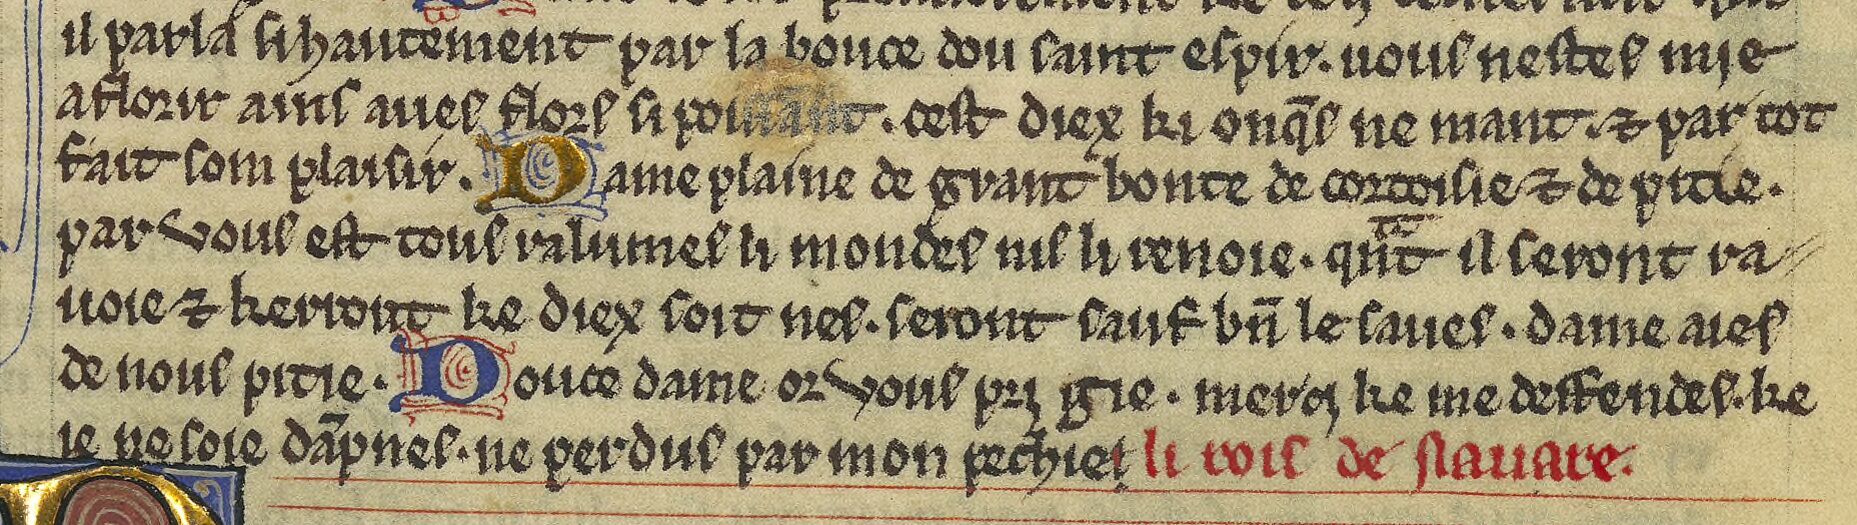 il parla si hautement par la bouce dou saint espir. uous nestes mie
a florir ains aues flors si pouuant. cest diex ki onqs̄ ne mant. ⁊ par tot
fait som plaisir. Dame plaine de grant bonte de cortoisie ⁊ de pitie.
par vous est tous ralumes li mondes nis li renoie. qn̄t il seront ra
uoie ⁊ kerront ke diex soit nes. seront sauf bn̄ le saues. dame aies
de nous pitie. Douce dame or vous pri gie. merci ke me deffendes. ke
ie ne soie dāpnes. ne perdus par mon pechiet li rois de nauare.